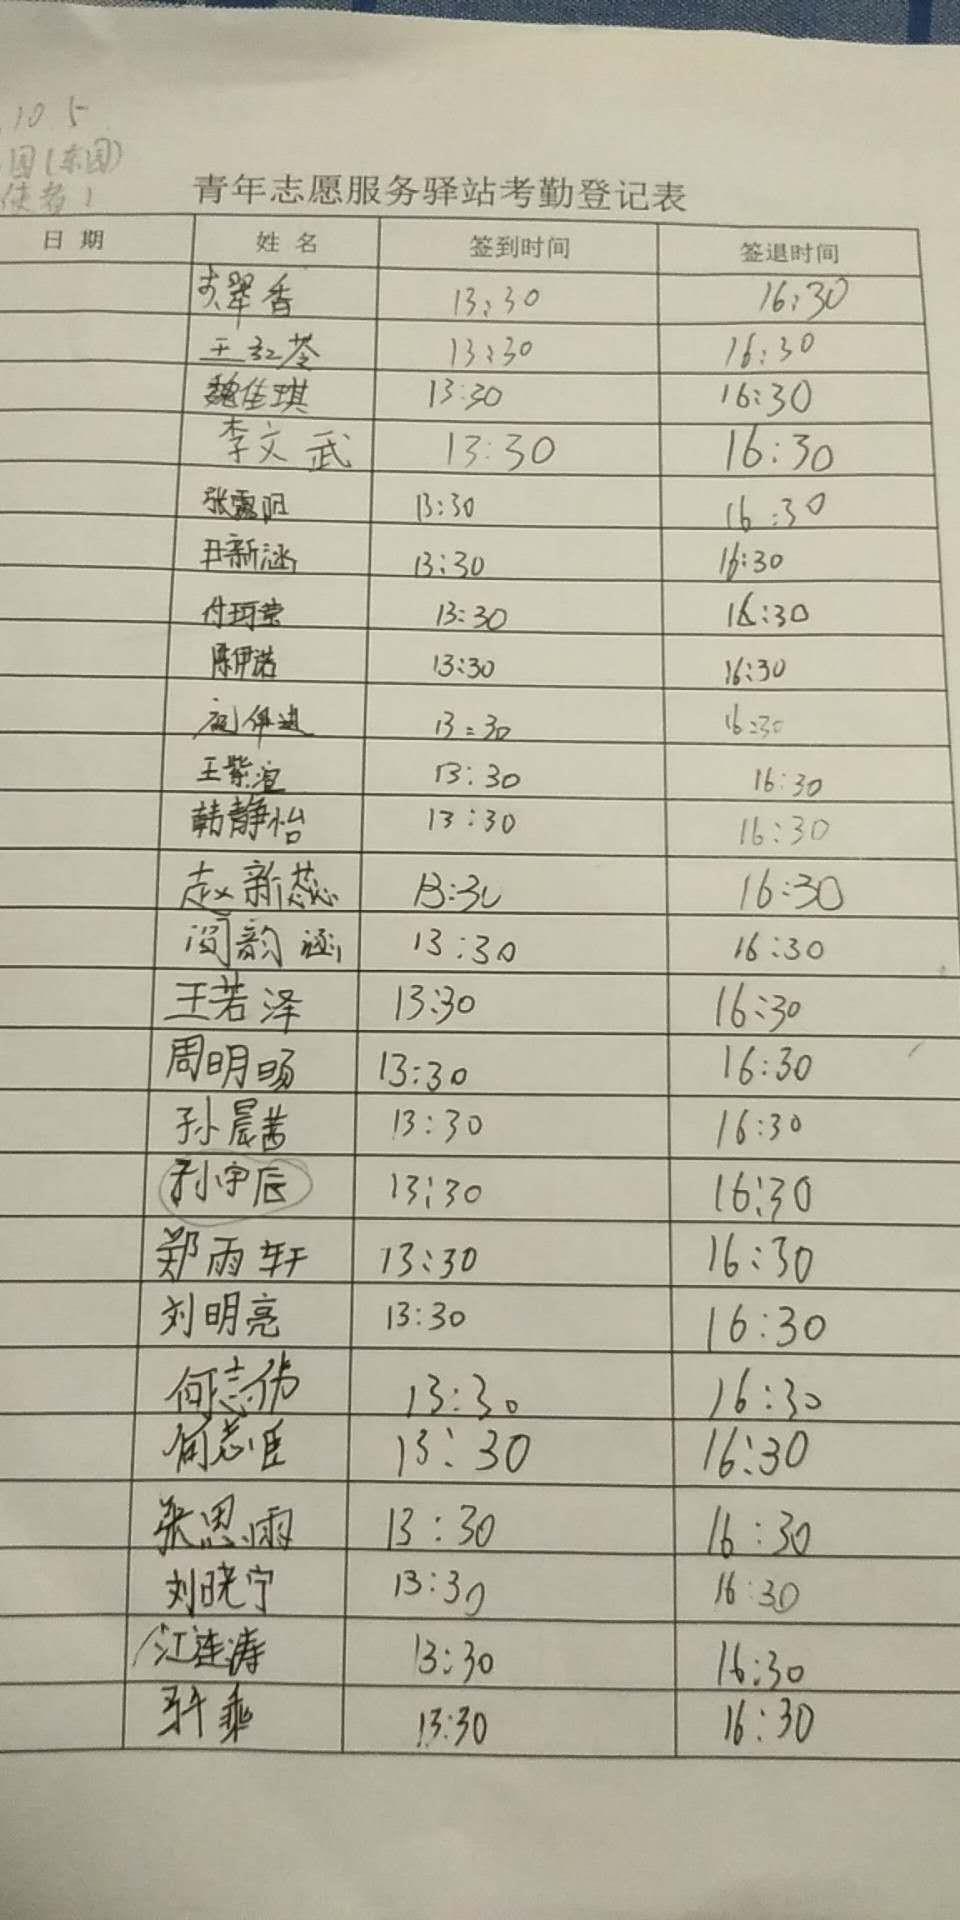 10.5
园(东园)
使者1
青年志愿服务驿站考勤登记表
日期 姓名 签到时间 签退时间
翠香 13:30 16:30
王红苓 13:30 16:30
魏佳琪 13:30 16:30
李文武 13:30 16:30
张露阳 13:30 16:30
丑新涵 13:30 16:30
付珂莹 13:30 16:30
陈伊诺 13:30 16:30
13:30 16:30
王紫渲 13:30 16:30
韩静怡 13:30 16:30
赵新蕊 13:30 16:30
闫韵涵 13:30 16:30
王若泽 13:30 16:30
周明旸 13:30 16:30
孙晨茜 13:30 16:30
孙宇辰 13:30 16:30
郑雨轩 13:30 16:30
刘明亮 13:30 16:30
何志伟 13:30 16:30
何志臣 13:30 16:30
张思雨 13:30 16:30
刘晓宁 13:30 16:30
江连涛 13:30 16:30
13:30 16:30